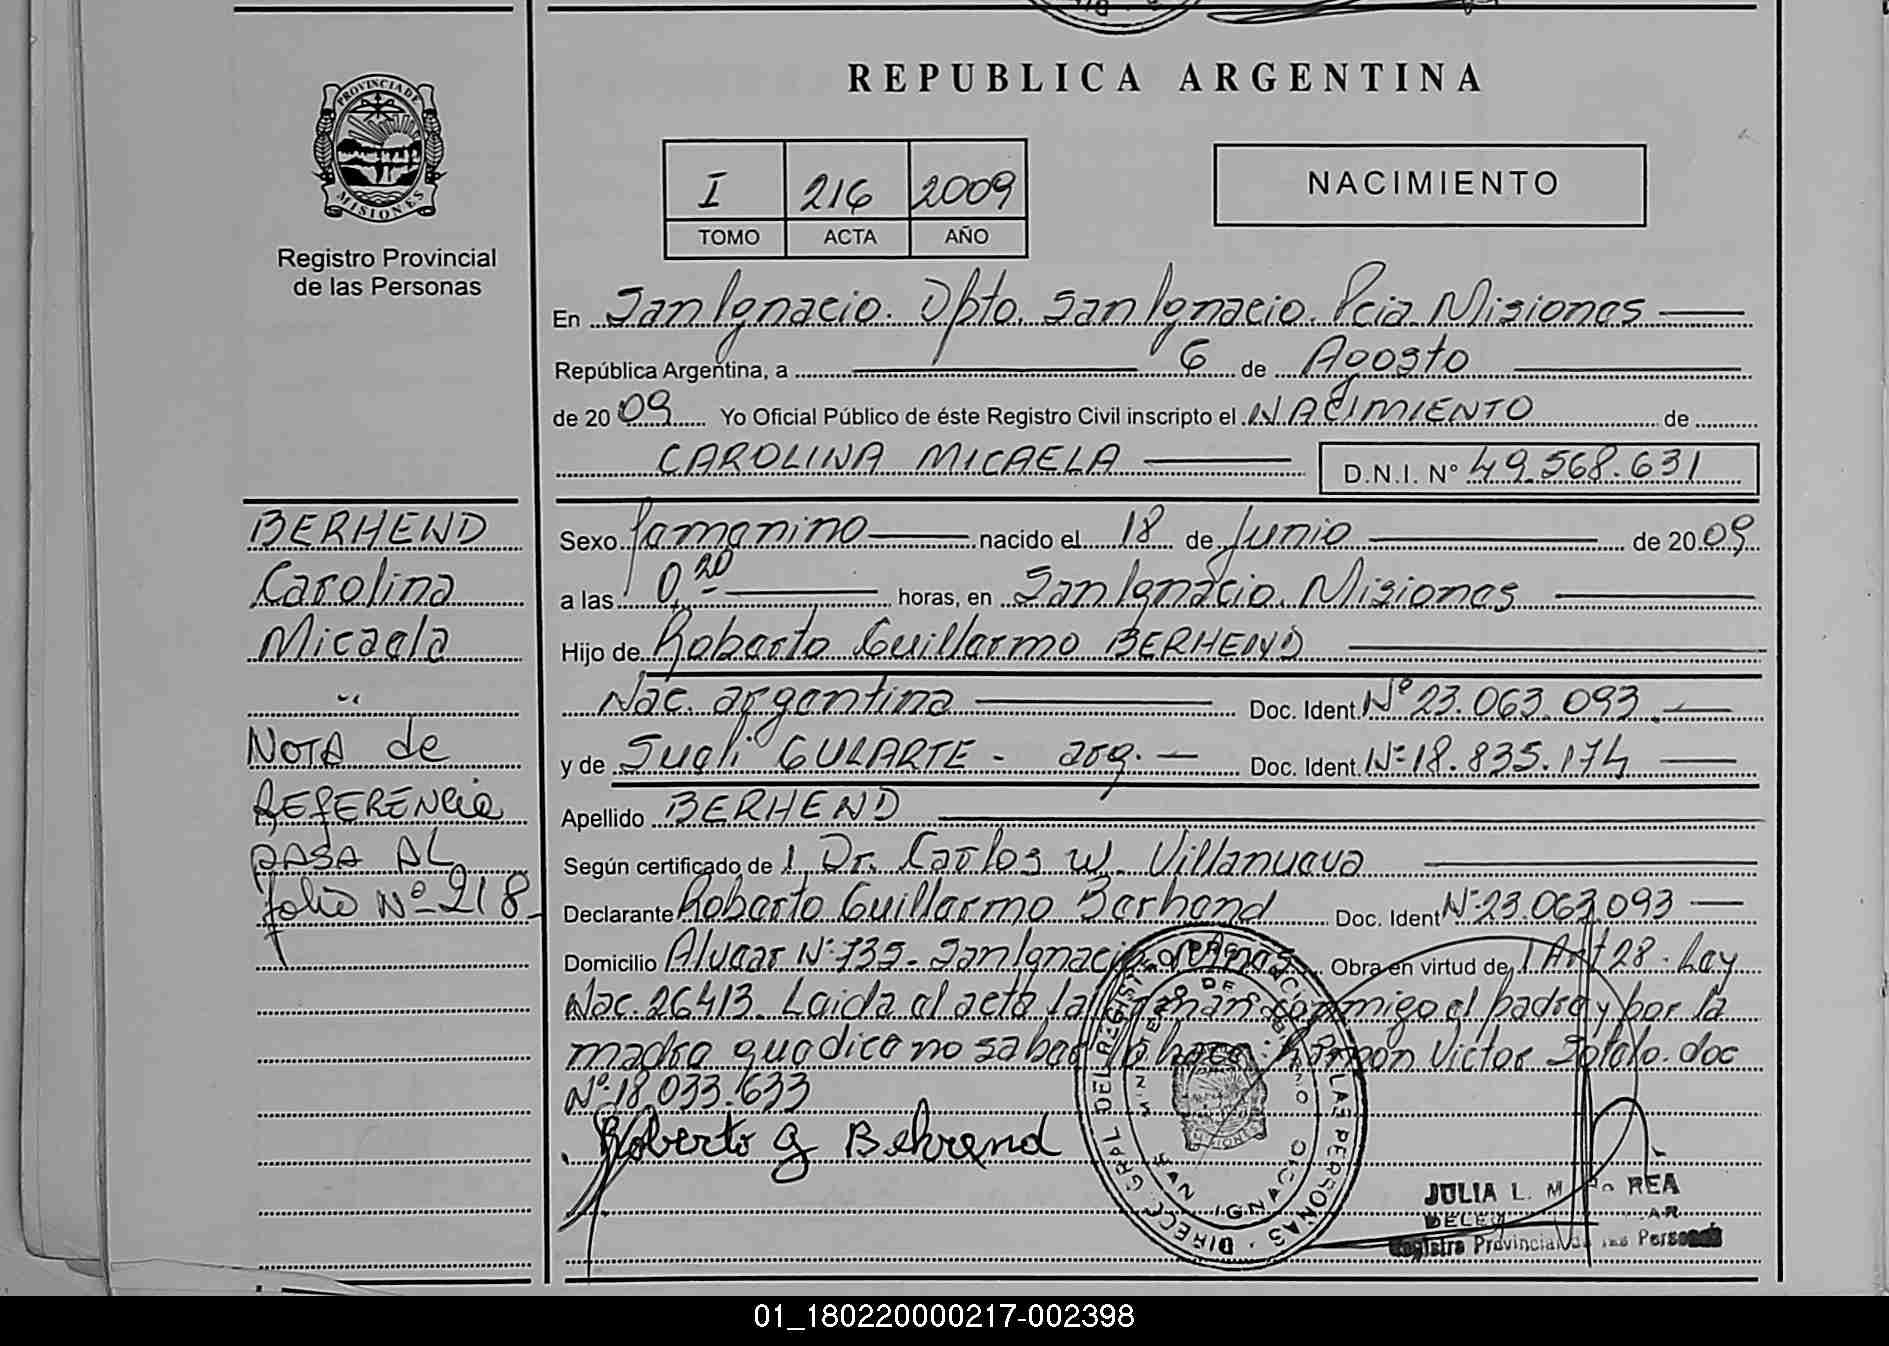 REPUBLICA ARGENTINA
PROVINCIA DE MISIONES
Registro Provincial
de las Personas
I 216 2009
TOMO ACTA AÑO
NACIMIENTO
En San Ignacio. Dpto. San Ignacio. Pcia. Misiones
República Argentina, a 6 de Agosto
de 2009 Yo Oficial Público de éste Registro Civil inscripto el NACIMIENTO de
CAROLINA MICAELA D.N.I. N° 49.568.631
BERHEND
Carolina
Micaela
NOTA de
REFERENCIA
PASA AL
folio Nº 218
Sexo femenino nacido el 18 de Junio de 2009
a las 0,20 horas, en San Ignacio. Misiones
Hijo de Roberto Guillermo BERHEND
Nac. argentina Doc. Ident. Nº 23.063.093.
y de Sueli GULARTE - arg. - Doc. Ident. Nº 18.835.174
Apellido BERHEND
Según certificado de l Dr. Carlos W. Villanueva
Declarante Roberto Guillermo Berhend Doc. Ident Nº 23.063.093
Domicilio Alvear Nº 735. San Ignacio. Obra en virtud de l Art 28. Ley
Nac. 26413. Leida el acta la firman conmigo el padre y por la
madre que dice no saber lo hace Ramón Victor Sotelo. doc
Nº 18.033.633
Roberto G Behrend
DIRECC. GRAL. DEL REGISTRO PROVINCIAL DE LAS PERSONAS
SAN IGNACIO
JULIA L.
Registro Provincial de las Personas
01_180220000217-002398